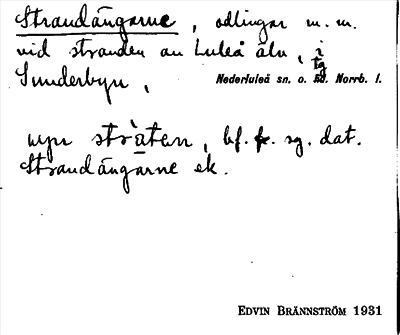 Strandängarne, odlingar m. m.
vid stranden av Luleå älv, i
Sunderbyn, Nederluleå sn. o. tg. Norrb. l.
uyn stràten, bf. fr. sg. dat.
Strandängarne ek.
EDVIN BRÄNNSTRÖM 1931